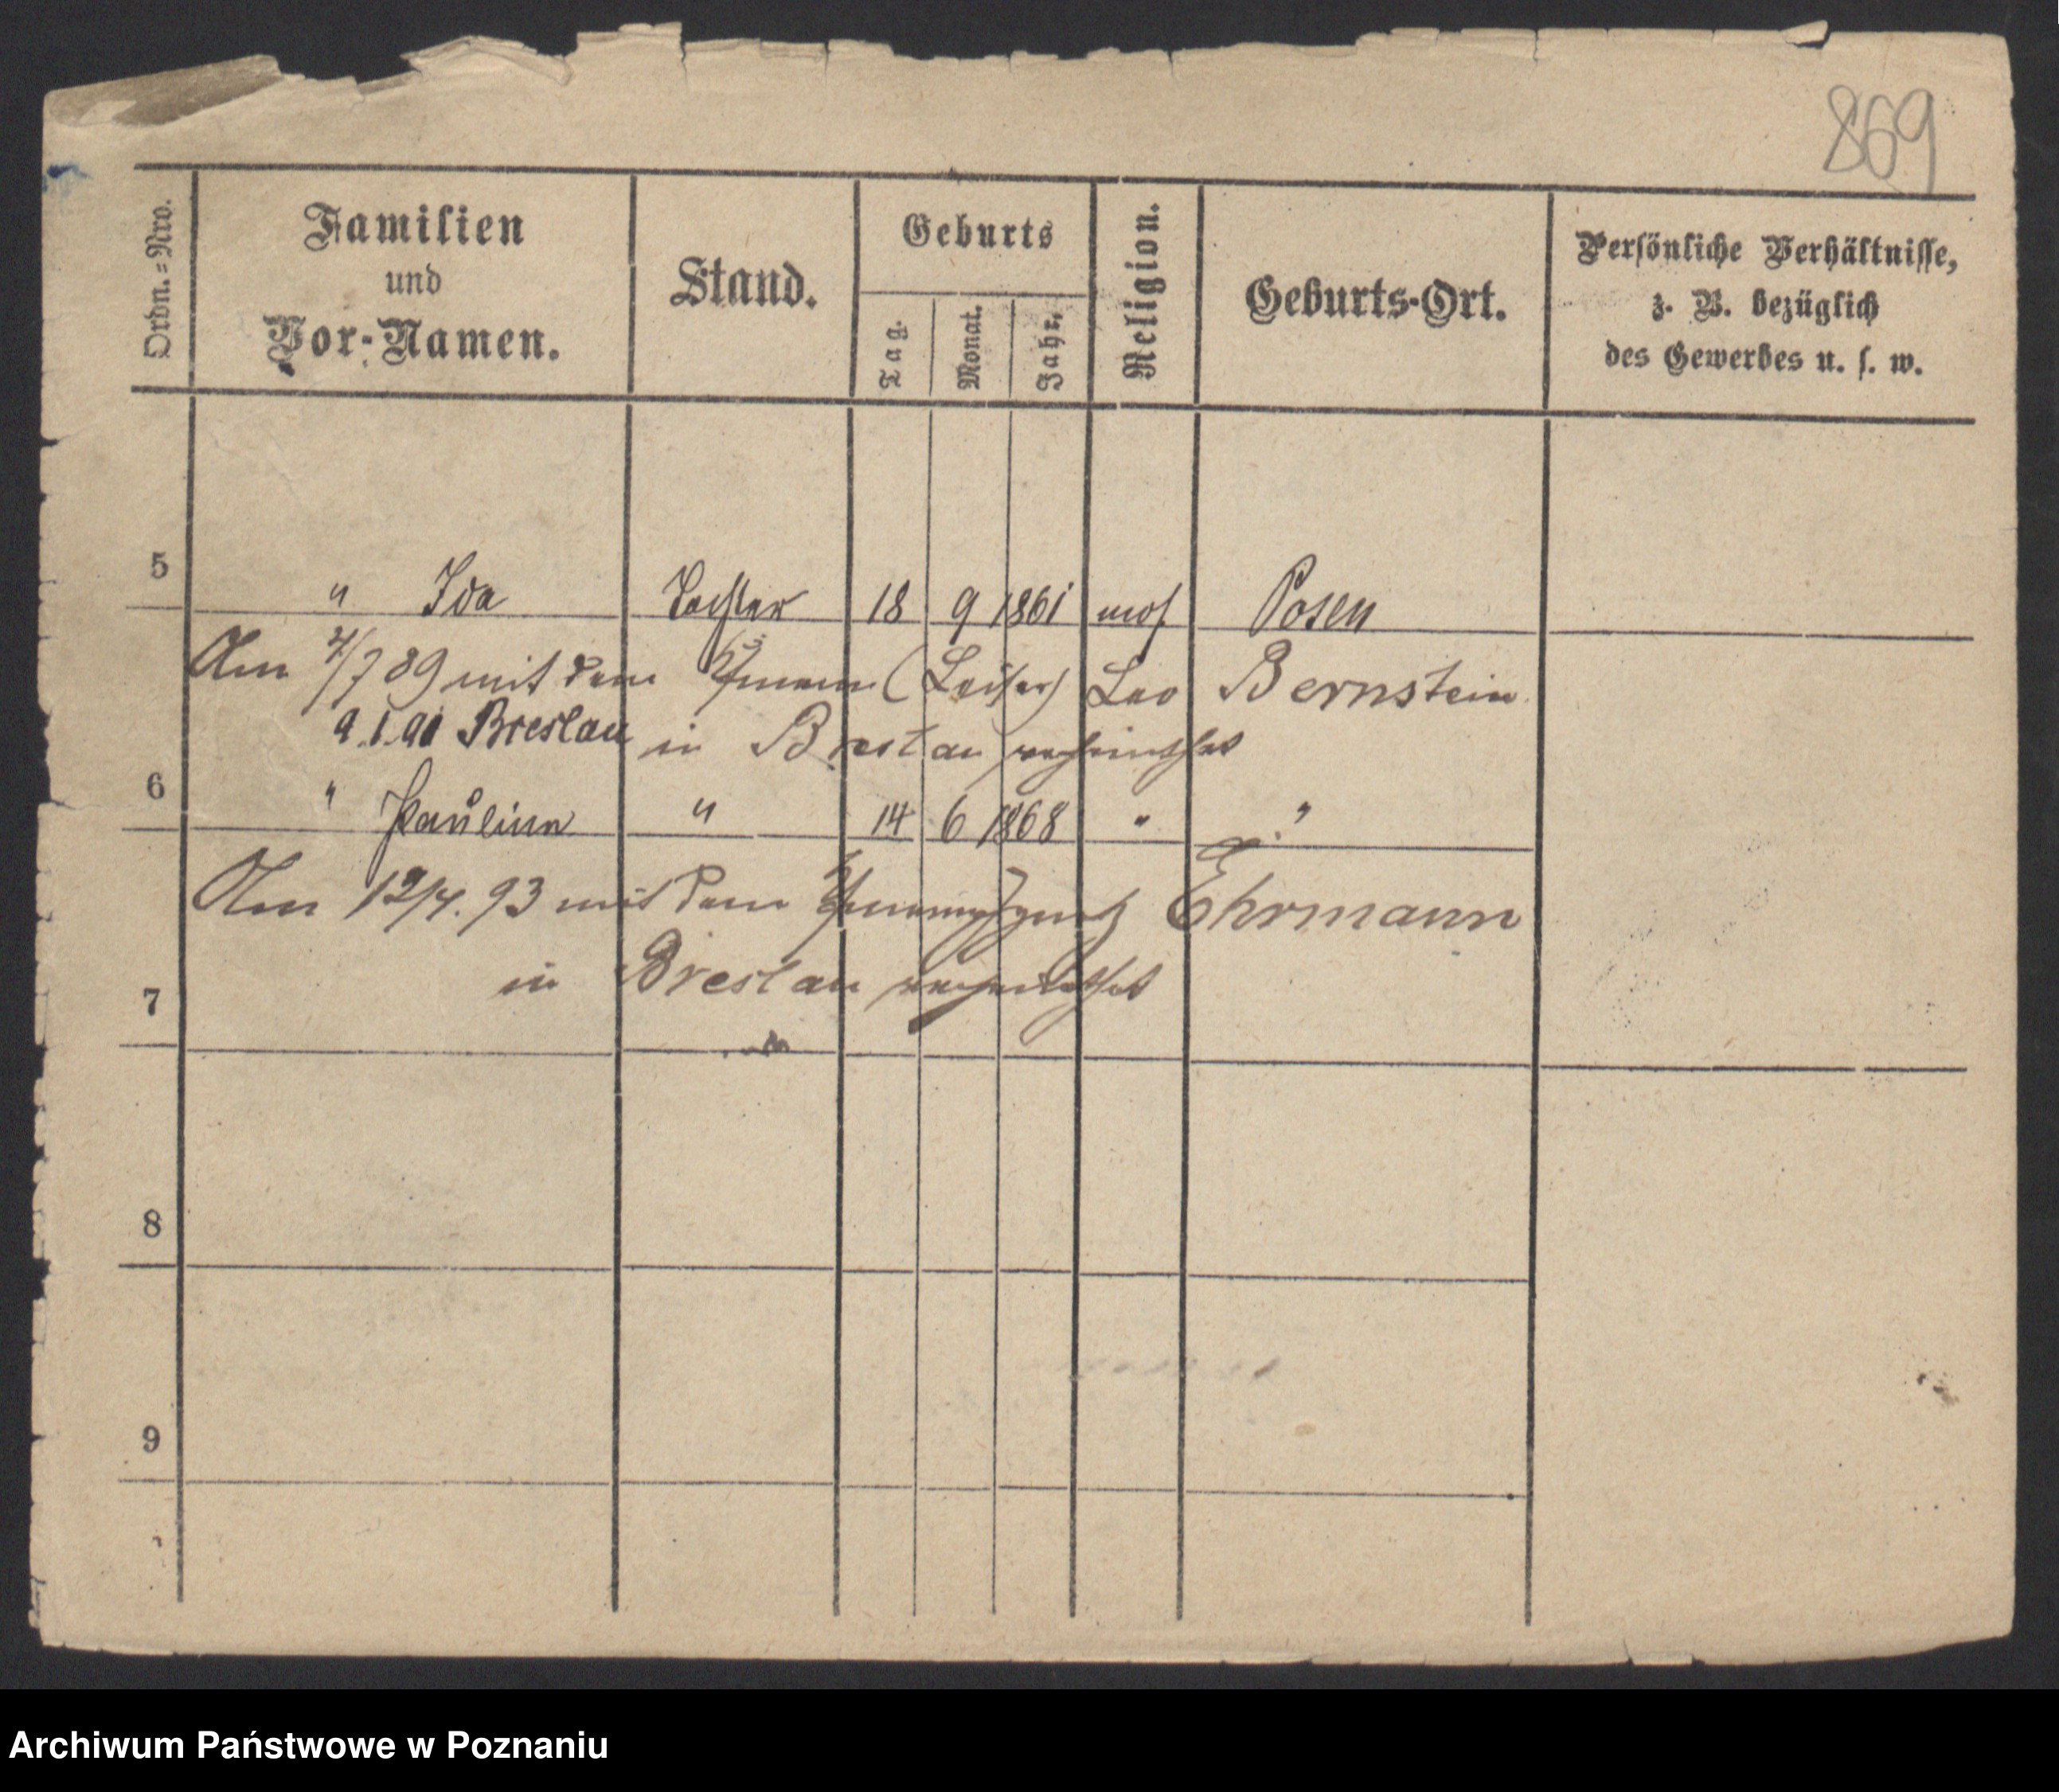 869
Ordn.=Nro.
Familien
und
Vor-Namen.
Stand.
Geburts
Tag.
Monat.
Jahr.
Religion.
Geburts-Ort.
Persönliche Verhältnisse,
z. B. bezüglich
des Gewerbes u. s. w.
5 " Ida Tochter 18 9 1861 mos. Posen
Am 4/7 89 mit dem (Leiser) Leo Bernstein
9.1.91 Breslau in Breslau verheirathet
6 " Pauline " 14 6 1868 " "
Am 12/4. 93 mit dem Ehrmann
in Breslau verheirathet
7
8
9
Archiwum Państwowe w Poznaniu